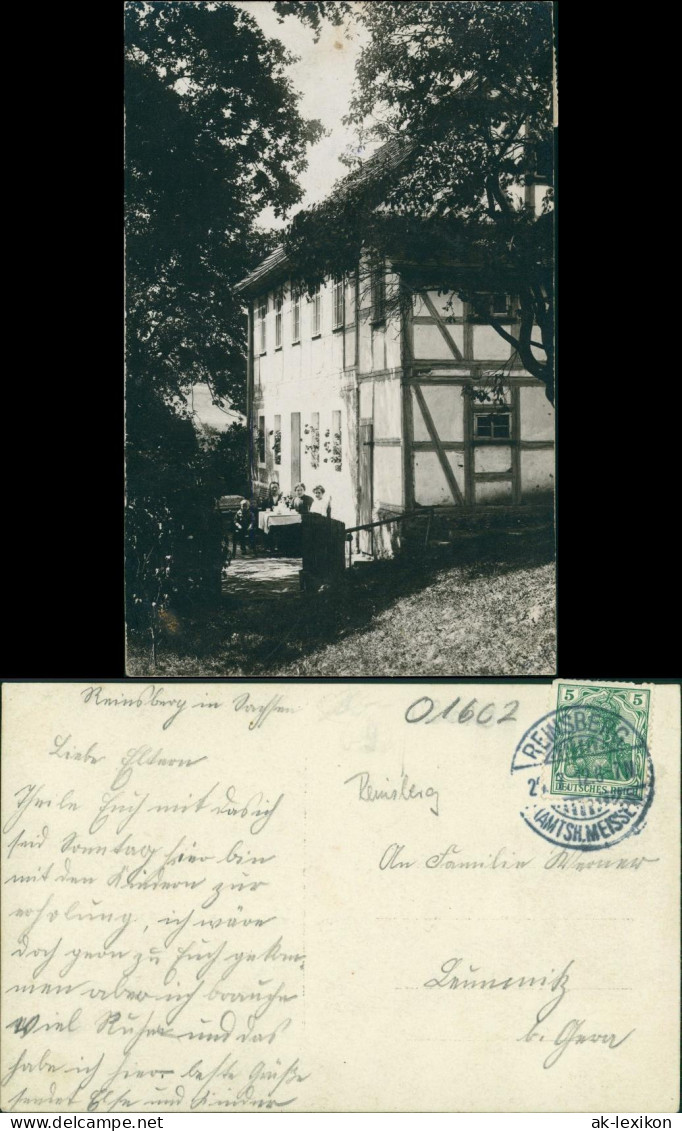 Reinsberg in Sachsen
O1602
5 5
REINSBERG
(AMTSH.MEISSEN)
DEUTSCHES REICH
Liebe Eltern
Reinsberg
Theile Euch mit das ich
seid Sonntag hier bin
mit den Kindern zur
erholung, ich wäre
doch gern zu Euch gekom,
men aber ich brauche
viel Ruhe und das
habe ich hier beste Grüße
sendet Else und Kinder
An Familie Werner
b. Gera
ak-lexikon
www.delcampe.net